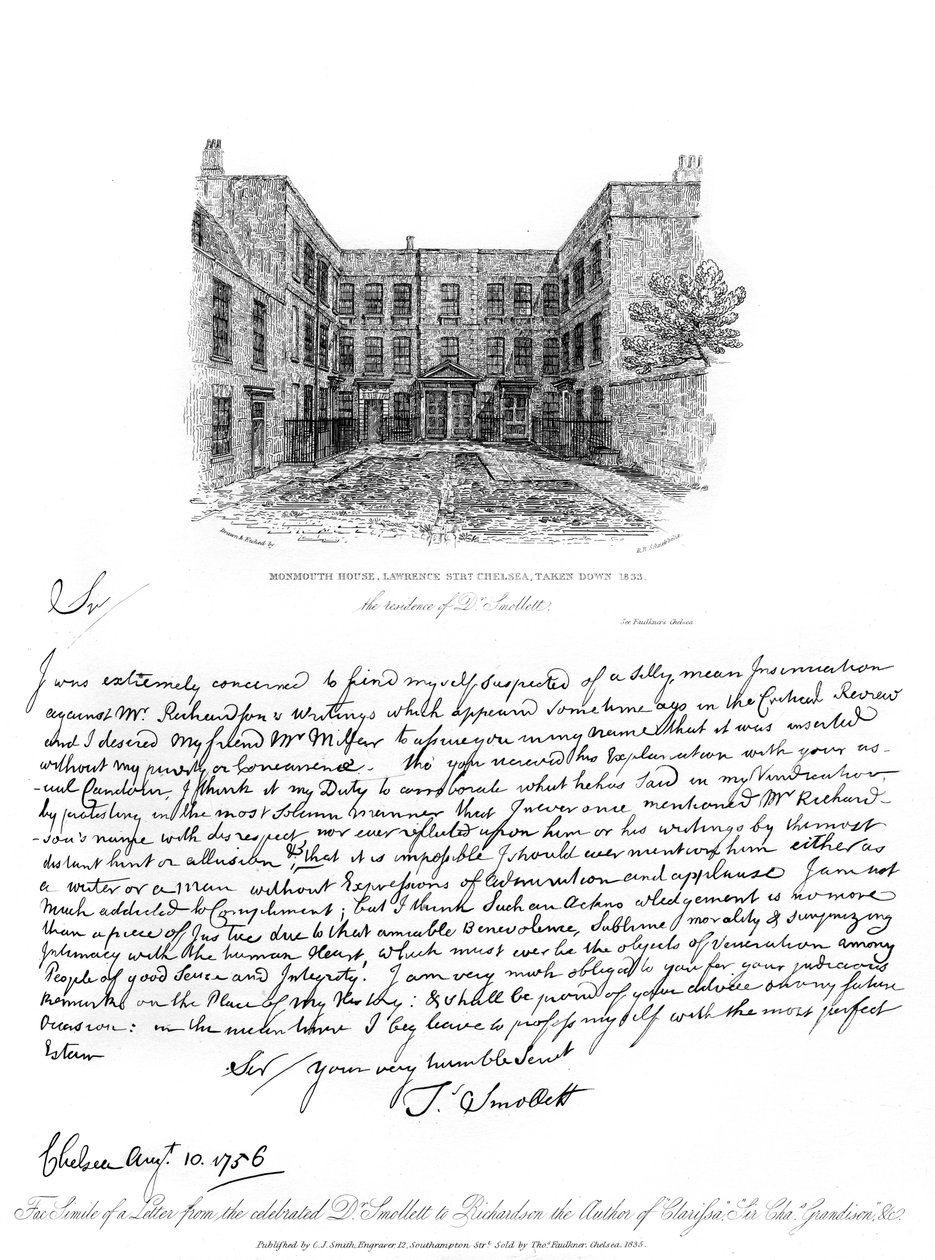 Drawn & Etched by
R. B. Schnebbelie
MONMOUTH HOUSE, LAWRENCE STRT CHELSEA, TAKEN DOWN 1833.
the residence of Dr. Smollett.
See Faulkner's Chelsea
Sr/
I was extremely concerned to find myself suspected of a silly, mean Insinuation
against Mr. Richardson's Writings which appeard some time ago in the Critical Review
and I desired my friend Mr Millar to assure you in my name that it was inserted
without my privity or Concurrence. Tho' you received his Explanation with your us-
-ual Candour, I think it my Duty to corroborate what he has Said in my Vindication,
by protesting in the most Solemn manner that I never once mentioned Mr Richard-
-son's name with disrespect nor ever reflected upon him or his writings by the most
distant hint or allusion & that it is impossible I should ever mention him either as
a writer or a man without Expressions of admiration and applause I am not
Much addicted to Compliment; but I think Such an Acknowledgement is no more
than a piece of Justice due to that amiable Benevolence, Sublime morality & surprizing
Intimacy with the human Heart, which must ever be the objects of Veneration among
People of good Sence and Integrity. I am very much obliged to you for your judicious
Remarks on the Place of my History: & shall be proud of your advice on any future
Occasion: in the mean time I beg leave to profess myself with the most perfect
Esteem
Sir/ your very humble Servt
Ts. Smollett
Chelsea Augt. 10. 1756
Fac Simile of a Letter from the celebrated Dr. Smollett to Richardson the Author of "Clarissa", "Sir Chas. Grandison", &c.
Published by C. J. Smith, Engraver, 12, Southampton Strt. Sold by Thos. Faulkner, Chelsea, 1835.